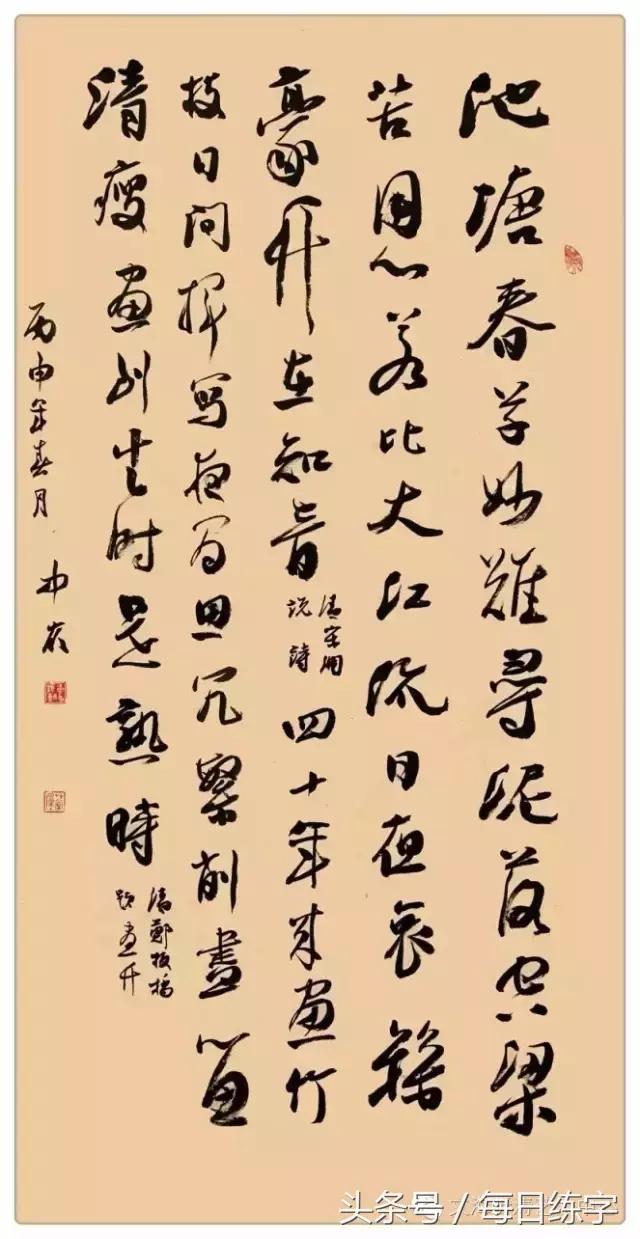 池塘春草妙難尋泥落空梁
苦用心若比大江流日夜哀
豪竹在知音
清宋湘
説詩
四十年來畫竹
枝日間揮寫夜間思冗繁削盡留
清瘦畫到生時是熟時
清鄭板橋
題畫竹
丙申年春月
头条号 / 每日练字